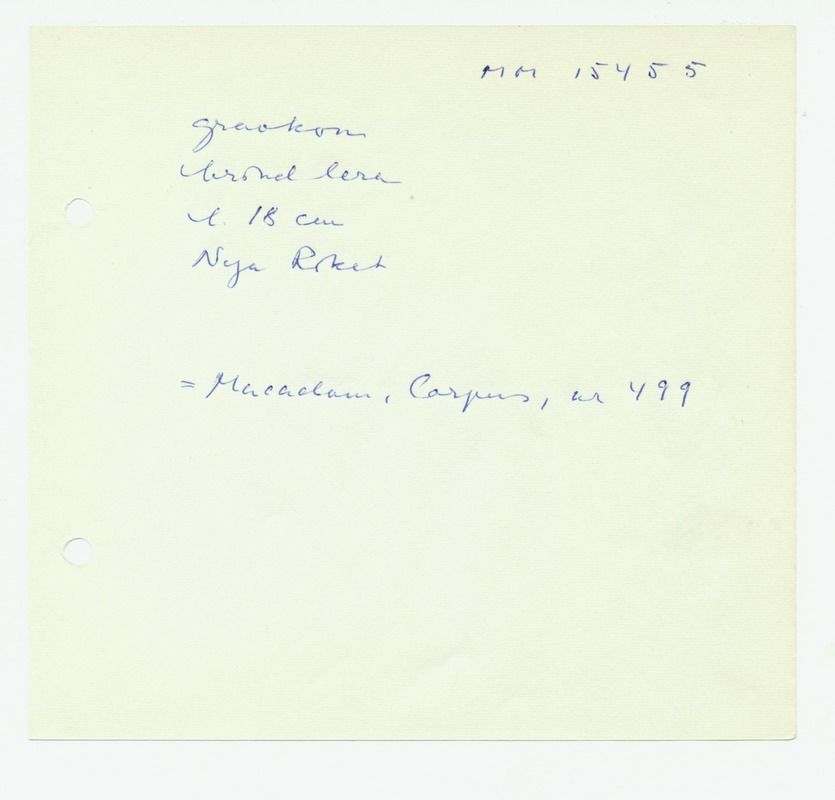 MM 15455
gravkon
bränd lera
l. 18 cm
Nya Riket
= Macadam, Corpus, nr 499